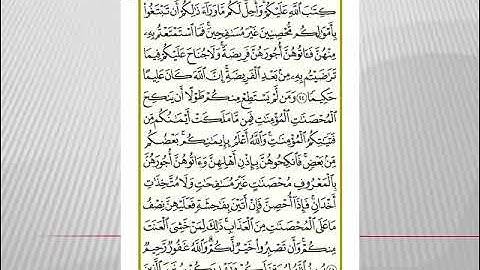 كِتَٰبَ اَ۬للَّهِ عَلَيْكُمْ وَأُحِلَّ لَكُم مَّا وَرَآءَ ذَٰلِكُمْ أَن تَبْتَغُوا۟
بِأَمْوَٰلِكُم مُّحْصِنِينَ غَيْرَ مُسَٰفِحِينَ فَمَا اَ۪سْتَمْتَعْتُم بِهِۦ
مِنْهُنَّ فَـَٔاتُوهُنَّ أُجُورَهُنَّ فَرِيضَةً وَلَا جُنَاحَ عَلَيْكُمْ فِيمَا
تَرَٰضَيْتُم بِهِۦ مِنۢ بَعْدِ اِ۬لْفَرِيضَةِ إِنَّ اَ۬للَّهَ كَانَ عَلِيمًا
حَكِيمًا ٢٤ وَمَن لَّمْ يَسْتَطِعْ مِنكُمْ طَوْلًا أَن يَنكِحَ
اَ۬لْمُحْصَنَٰتِ اِ۬لْمُؤْمِنَٰتِ فَمِن مَّا مَلَكَتْ أَيْمَٰنُكُم مِّن
فَتَيَٰتِكُمُ اُ۬لْمُؤْمِنَٰتِ وَاللَّهُ أَعْلَمُ بِإِيمَٰنِكُم بَعْضُكُم
مِّنۢ بَعْضٍ فَانكِحُوهُنَّ بِإِذْنِ أَهْلِهِنَّ وَءَاتُوهُنَّ أُجُورَهُنَّ
بِالْمَعْرُوفِ مُحْصَنَٰتٍ غَيْرَ مُسَٰفِحَٰتٍ وَلَا مُتَّخِذَٰتِ
أَخْدَانٍ فَإِذَا أُحْصِنَّ فَإِنْ أَتَيْنَ بِفَٰحِشَةٍ فَعَلَيْهِنَّ نِصْفُ
مَا عَلَى اَ۬لْمُحْصَنَٰتِ مِنَ اَ۬لْعَذَابِ ذَٰلِكَ لِمَنْ خَشِيَ اَ۬لْعَنَتَ
مِنكُمْ وَأَن تَصْبِرُوا۟ خَيْرٌ لَّكُمْ وَاللَّهُ غَفُورٌ رَّحِيمٌ